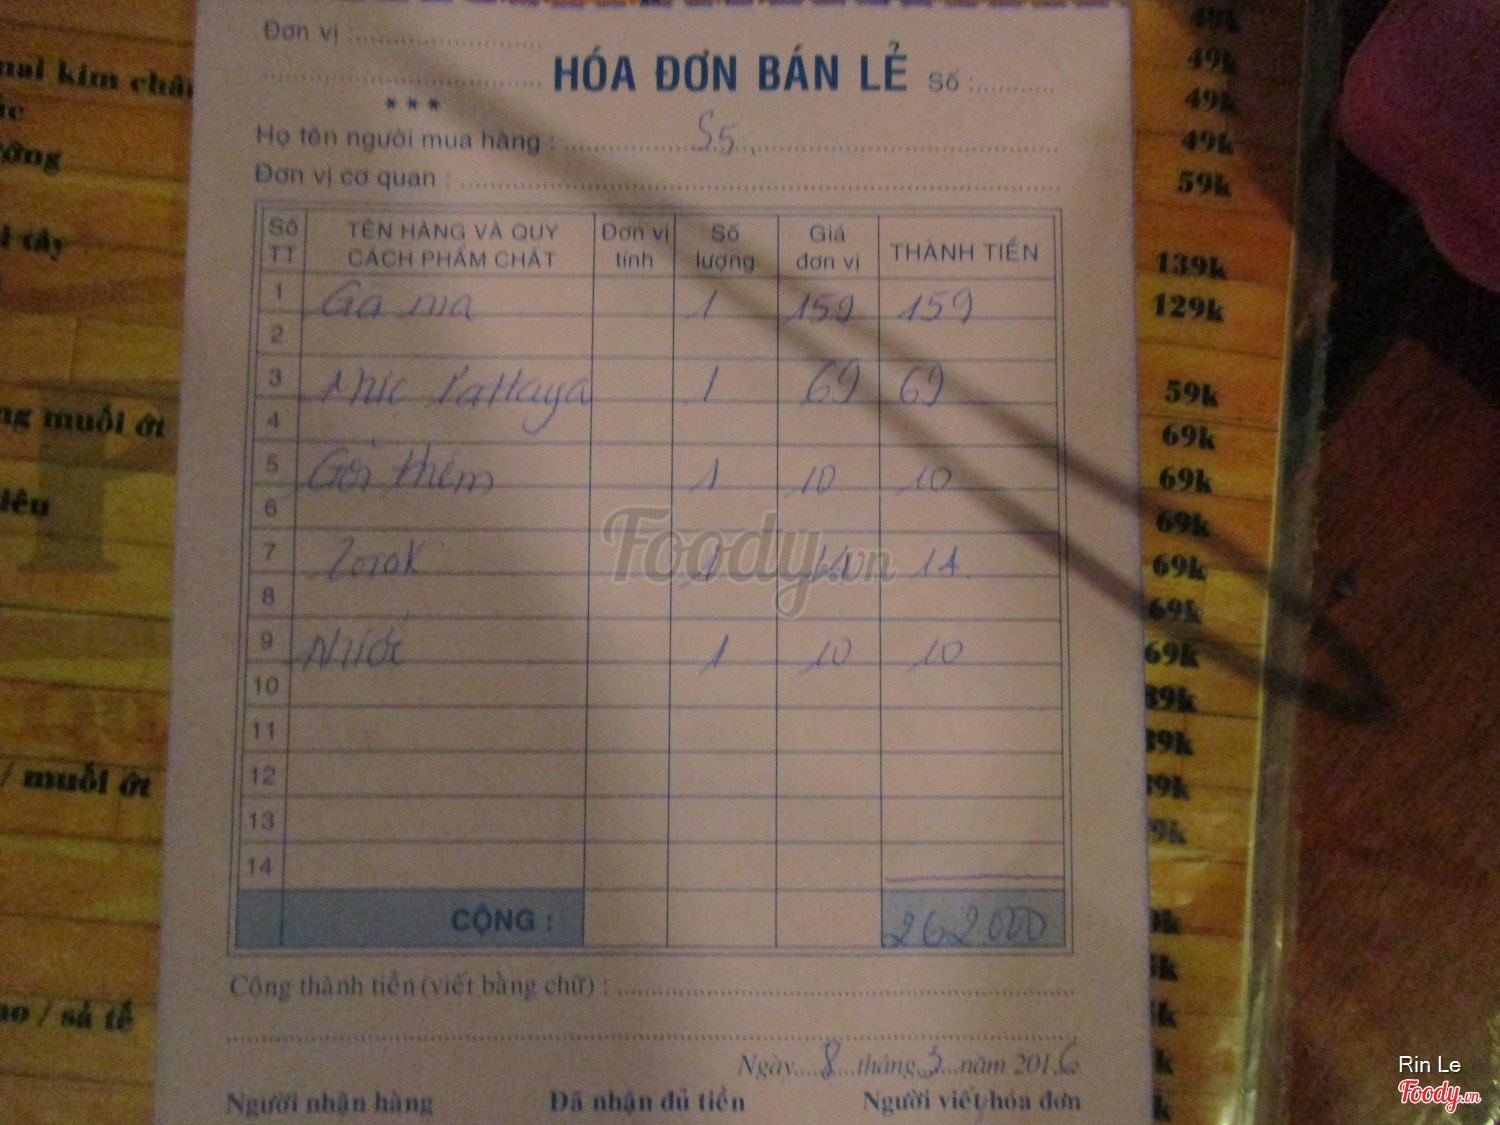 Đơn vị :
HÓA ĐƠN BÁN LẺ Số :
***
Họ tên người mua hàng : S5
Đơn vị cơ quan :
Số TT TÊN HÀNG VÀ QUY CÁCH PHẨM CHẤT Đơn vị tính Số lượng Giá đơn vị THÀNH TIỀN
1 1 159 159
2
3 Mực Pattaya 1 69 69
4
5 Gỏi thêm 1 10 10
6
7 Zorok 1 14 14
8
9 Nước 1 10 10
10
11
12
13
14
CỘNG : 262.000
Cộng thành tiền (viết bằng chữ) :
Ngày 8 tháng 3 năm 2016
Người nhận hàng Đã nhận đủ tiền Người viết hóa đơn
Foody.vn
49k
49k
49k
59k
139k
129k
59k
69k
69k
69k
69k
69k
69k
muối ớt
/ muối ớt
/ sả tế
Rin Le
Foody.vn